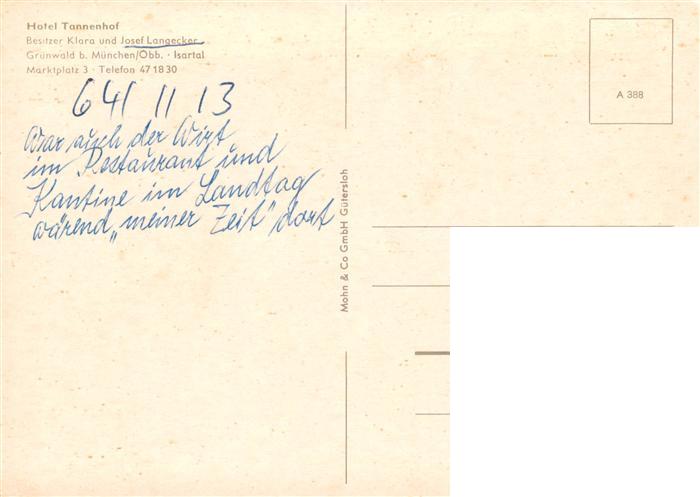 Hotel Tannenhof
Besitzer Klara und Josef Langecker
Grünwald b. München/Obb. · Isartal
Marktplatz 3 · Telefon 47 18 30
641 11 13
War auch der Wirt
im Restaurant und
Kantine im Landtag
wärend „meiner Zeit" dort
Mohn & Co GmbH Gütersloh
A 388